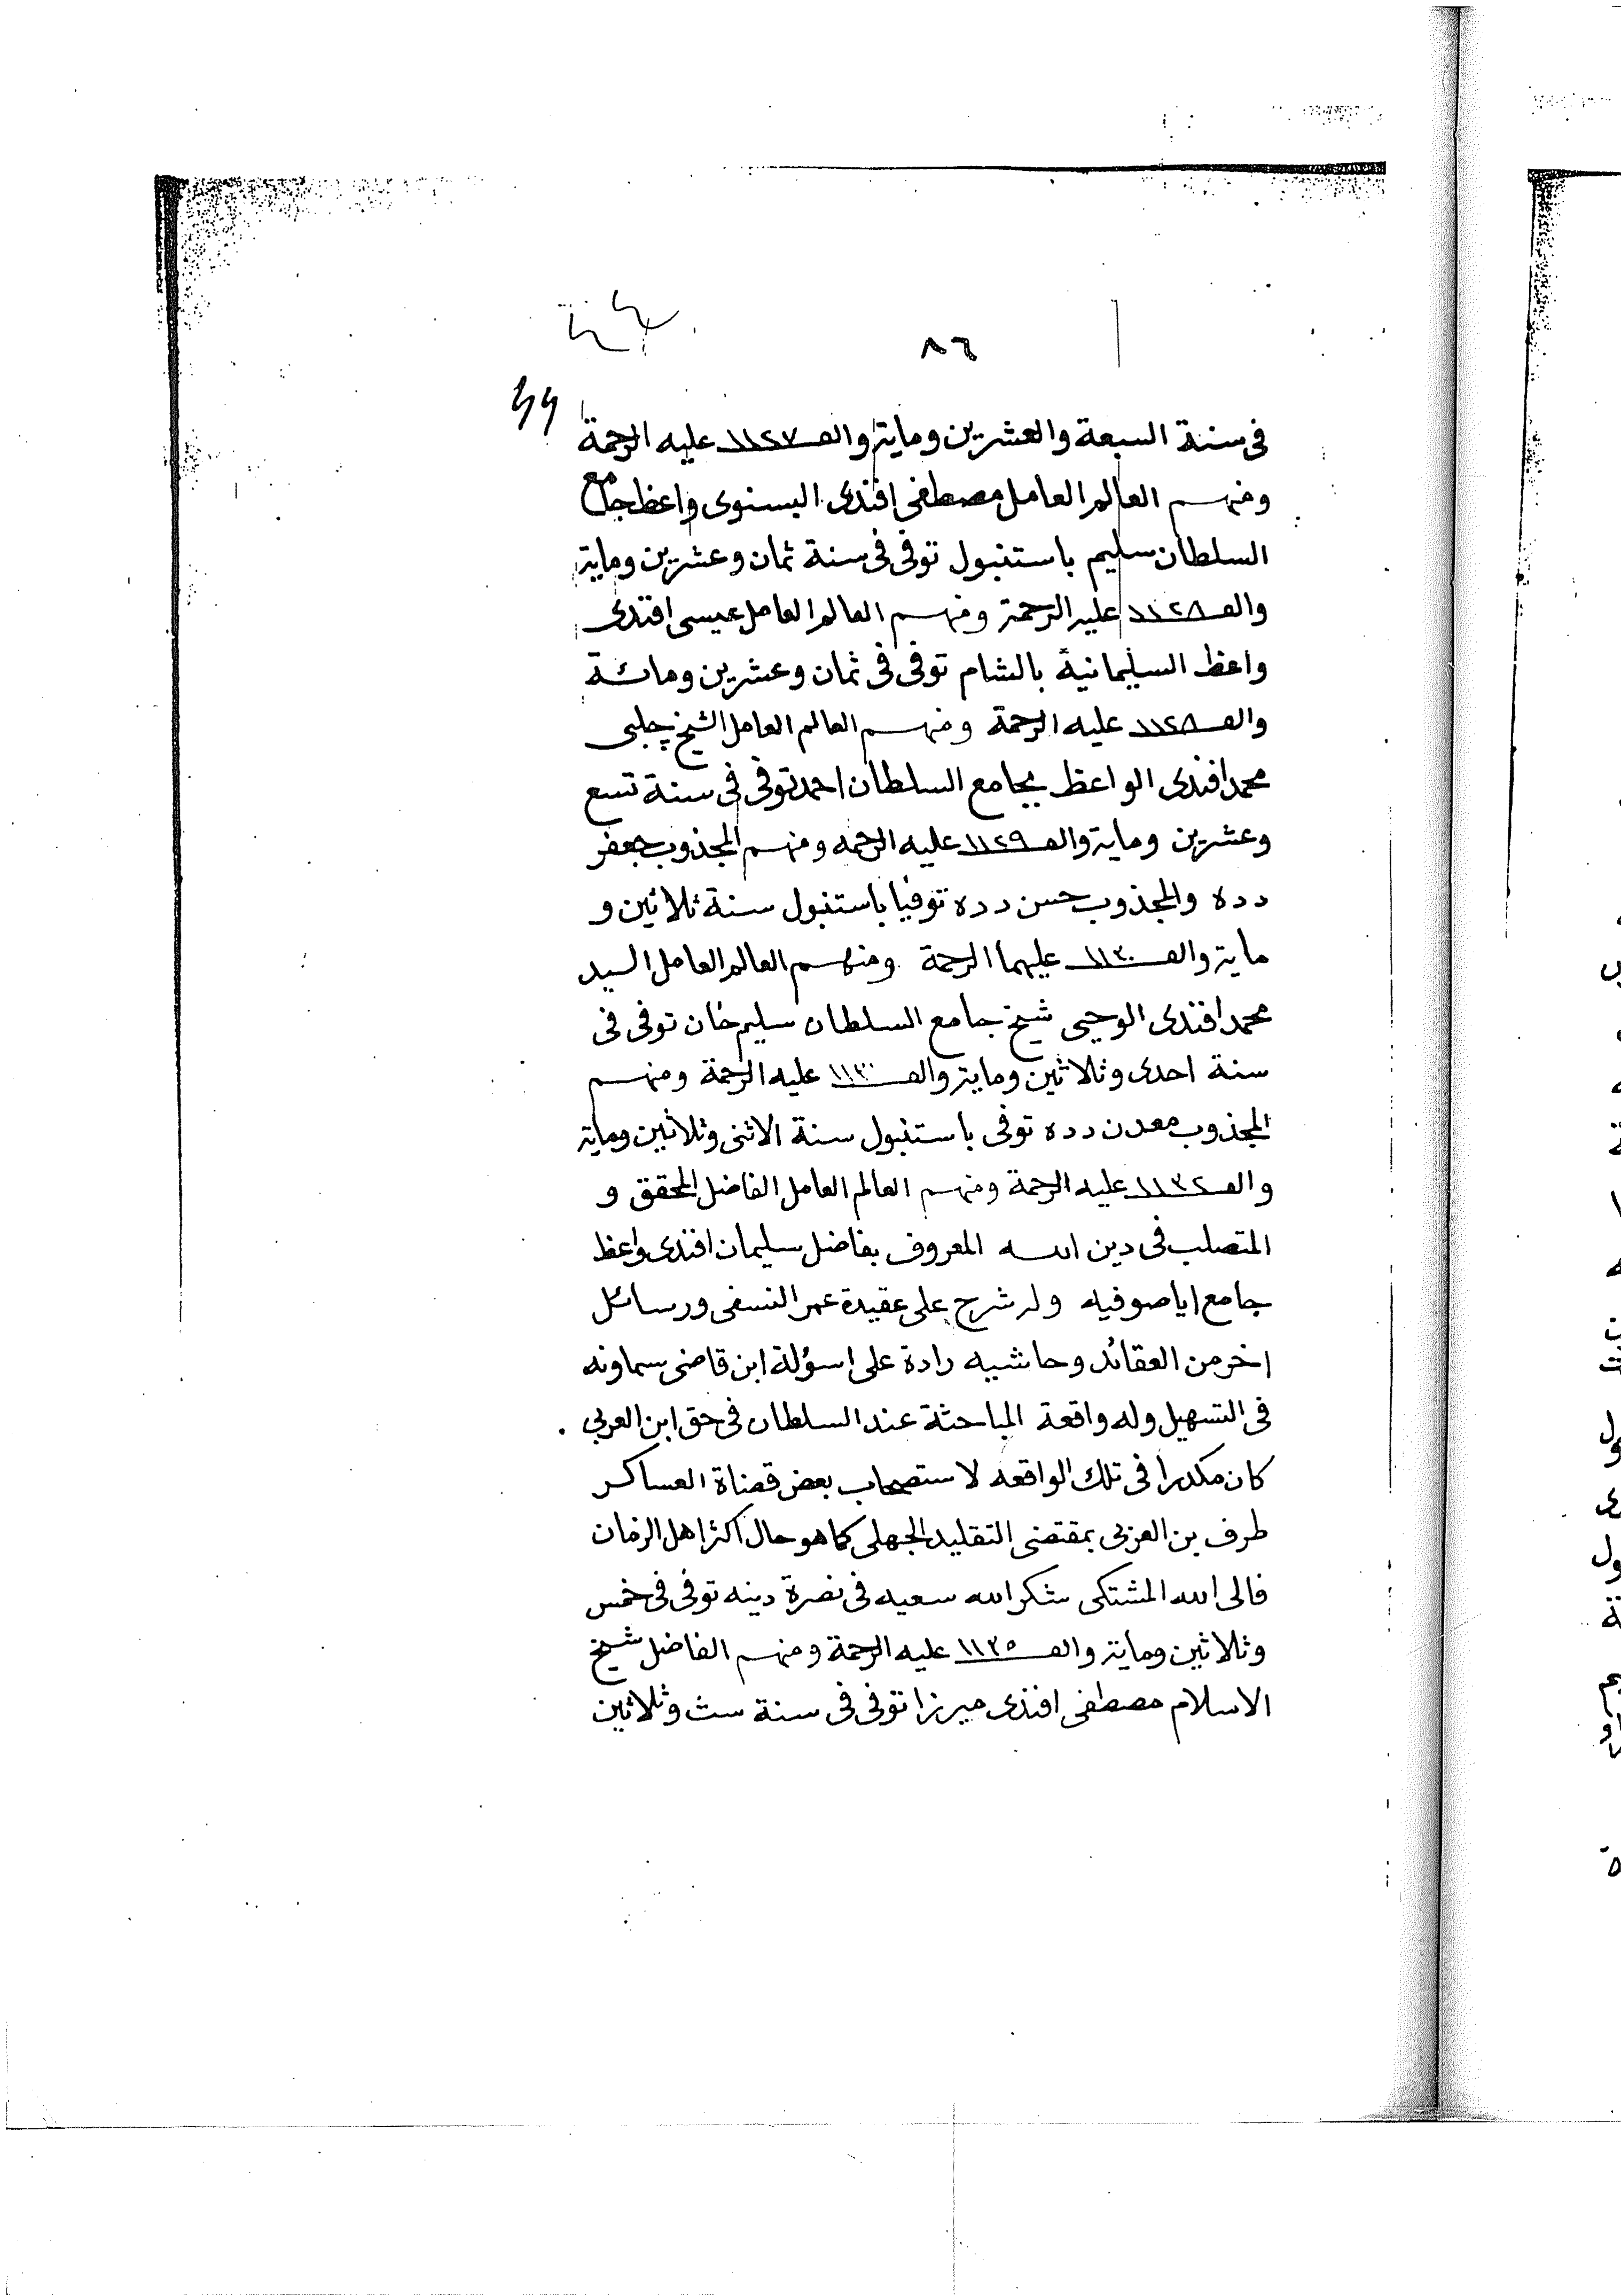 ٨٦
٤٤
في سنة السبعة والعشرين وماية والف ١١٢٧ عليه الرحمة
ومنهم العالم العامل مصطفى افندى البسنوى واعظ جامع
السلطان سليم باستنبول توفى فى سنة ثمان وعشرين وماية
والف ١١٢٨ عليه الرحمة ومنهم العالم العامل عيسى افندى
واعظ السليمانية بالشام توفى فى ثمان وعشرين ومائة
والف ١١٢٨ عليه الرحمة ومنهم العالم العامل الشيخ چلبى
محمد افندى الواعظ بجامع السلطان احمد توفى فى سنة تسع
وعشرين وماية والف ١١٢٩ عليه الرحمه ومنهم المجذوب جعفر
دده والمجذوب حسن دده توفيا باستنبول سنة ثلاثين و
ماية والف ١١٣٠ عليهما الرحمة ومنهم العالم العامل السيد
محمد افندى الوحيى شيخ جامع السلطان سليم خان توفى فى
سنة احدى وثلاثين وماية والف ١١٣٠ عليه الرحمة ومنهم
المجذوب معدن دده توفى باستنبول سنة الاثنى وثلاثين وماية
والف ١١٣٢ عليه الرحمة ومنهم العالم العامل الفاضل المحقق و
المتصلب فى دين الله المعروف بفاضل سليمان افندى واعظ
جامع اياصوفيه وله شرح على عقيدة عمر النسفى ورسائل
اخر من العقائد وحاشيه رادة على اسؤلة ابن قاضى سماونه
فى التسهيل وله واقعة المباحثة عند السلطان فى حق ابن العربي
كان مكدرا فى تلك الواقعه لاستصحاب بعض قضاة العساكر
طرف بن العربى بمقتضى التقليد الجهلى كما هو حال اكثر اهل الزمان
فالى الله المشتكى شكر الله سعيه فى نصرة دينه توفى فى خمس
وثلاثين وماية والف ١١٣٥ عليه الرحمة ومنهم الفاضل شيخ
الاسلام مصطفى افندى ميرزا توفى فى سنة ست وثلاثين